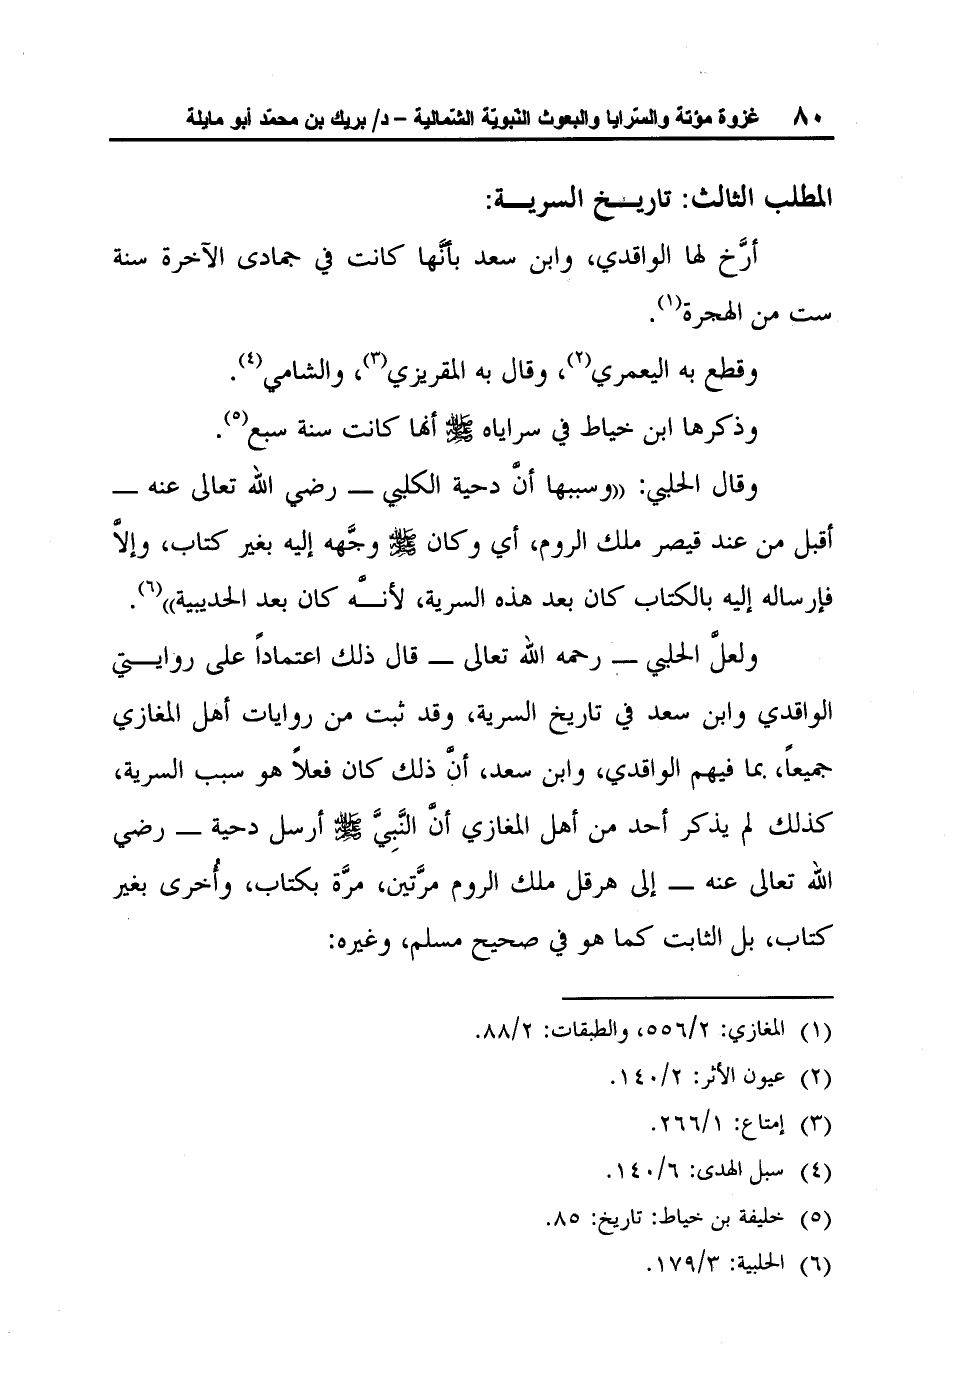 ٨٠ غزوة مؤتة والسّرايا والبعوث النّبويّة الشّمالية – د/ بريك بن محمّد أبو مايلة
المطلب الثالث: تاريـخ السريـة:
أرَّخ لها الواقدي، وابن سعد بأنَّها كانت في جمادى الآخرة سنة
ست من الهجرة(١).
وقطع به اليعمري(٢)، وقال به المقريزي(٣)، والشامي(٤).
وذكرها ابن خياط في سراياه ﷺ أنها كانت سنة سبع(٥).
وقال الحلبي: ((وسببها أنَّ دحية الكلبي — رضي الله تعالى عنه —
أقبل من عند قيصر ملك الروم، أي وكان ﷺ وجَّهه إليه بغير كتاب، وإلاَّ
فإرساله إليه بالكتاب كان بعد هذه السرية، لأنـَّه كان بعد الحديبية))(٦).
ولعلَّ الحلبي — رحمه الله تعالى — قال ذلك اعتماداً على روايـتي
الواقدي وابن سعد في تاريخ السرية، وقد ثبت من روايات أهل المغازي
جميعاً، بما فيهم الواقدي، وابن سعد، أنَّ ذلك كان فعلاً هو سبب السرية،
كذلك لم يذكر أحد من أهل المغازي أنَّ النَّبِيَّ ﷺ أرسل دحية — رضي
الله تعالى عنه — إلى هرقل ملك الروم مرَّتين، مرَّة بكتاب، وأُخرى بغير
كتاب، بل الثابت كما هو في صحيح مسلم، وغيره:
(١) المغازي: ٥٥٦/٢، والطبقات: ٨٨/٢.
(٢) عيون الأثر: ١٤٠/٢.
(٣) إمتاع: ٢٦٦/١.
(٤) سبل الهدى: ١٤٠/٦.
(٥) خليفة بن خياط: تاريخ: ٨٥.
(٦) الحلبية: ١٧٩/٣.